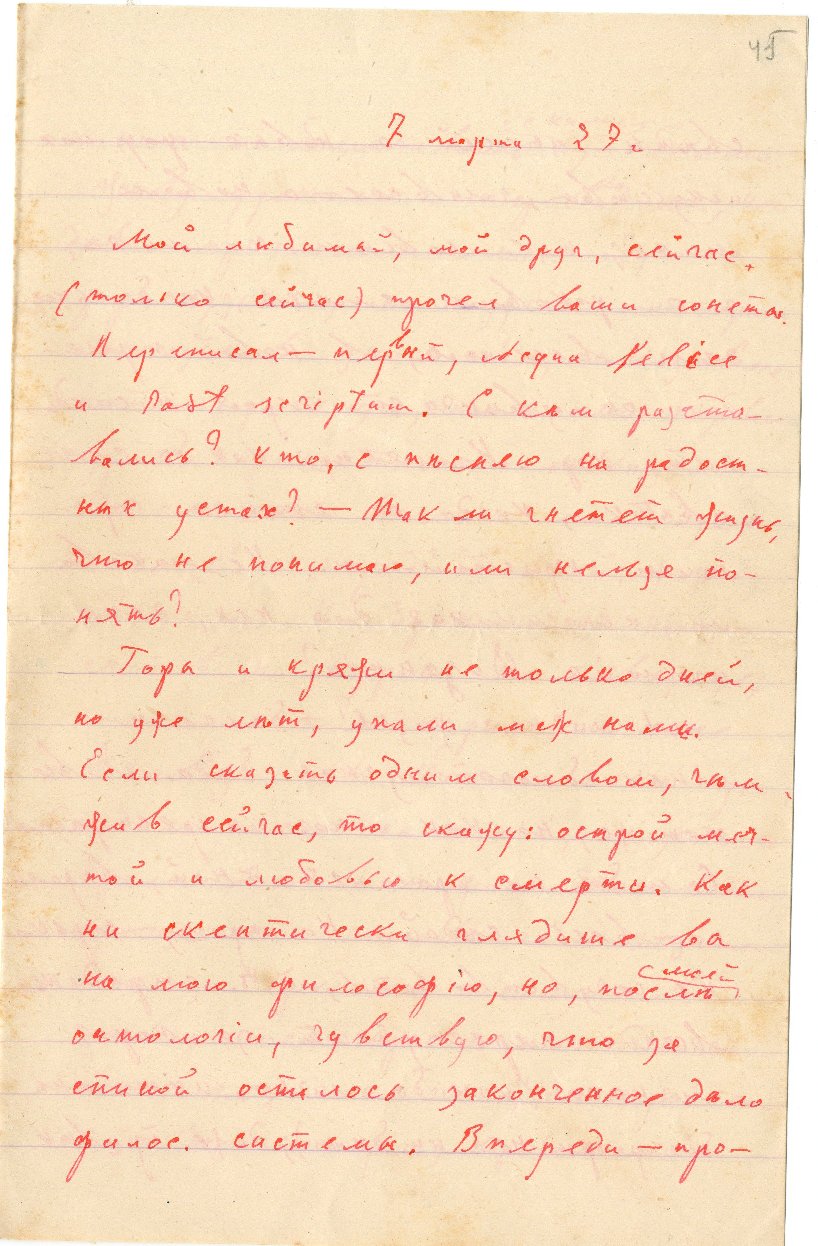 45
7 марта 27 г.
Мой любимый, мой друг, сейчас
(только сейчас) прочел ваши сонеты.
Переписал — первый, Aequa
и Post scriptum. С кем разста-
вались? Кто, с пѣснею на радост-
ных устах? — Так ли гнетет жизнь,
что не понимаю, или нельзя по-
нять?
Горы и кряжи не только дней,
но уже лѣт, упали меж нами.
Если сказать одним словом, чѣм
жив сейчас, то скажу: острой меч-
той и любовью к смерти. Как
ни скептически глядите вы
на мою философію, но, послѣ
своей
онтологіи, чувствую, что за
спиной осталось законченное дѣло
филос. системы. Впереди — про-